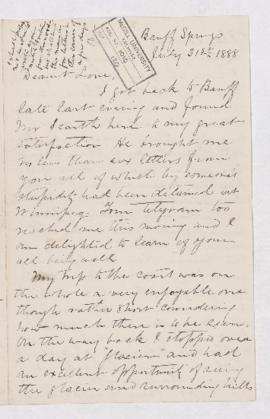 Banff Springs
July 31st 1888
McGILL UNIVERSITY
Dearest Love,
I got back to Banff
late last evening and found
Mr here to my great
satisfaction He brought me
no less than six letters from
you all of which by someone's
stupidity had been detained at
Winnipeg. Your telegram too
reached me this morning and I
am delighted to learn of your
all being well
My trip to the coast was on
the whole a very enjoyable one
though rather short considering
how much there is to be seen.
On the way back I stopped over
a day at Glacier and had
an excellent opportunity of seeing
the glacier and surrounding hills